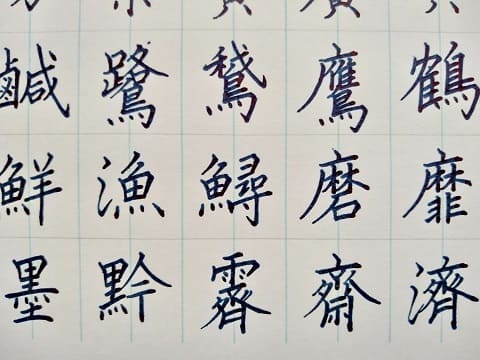 鹹鷺鵞鷹鶴
鮮漁鱘磨靡
墨黔霽齋濟